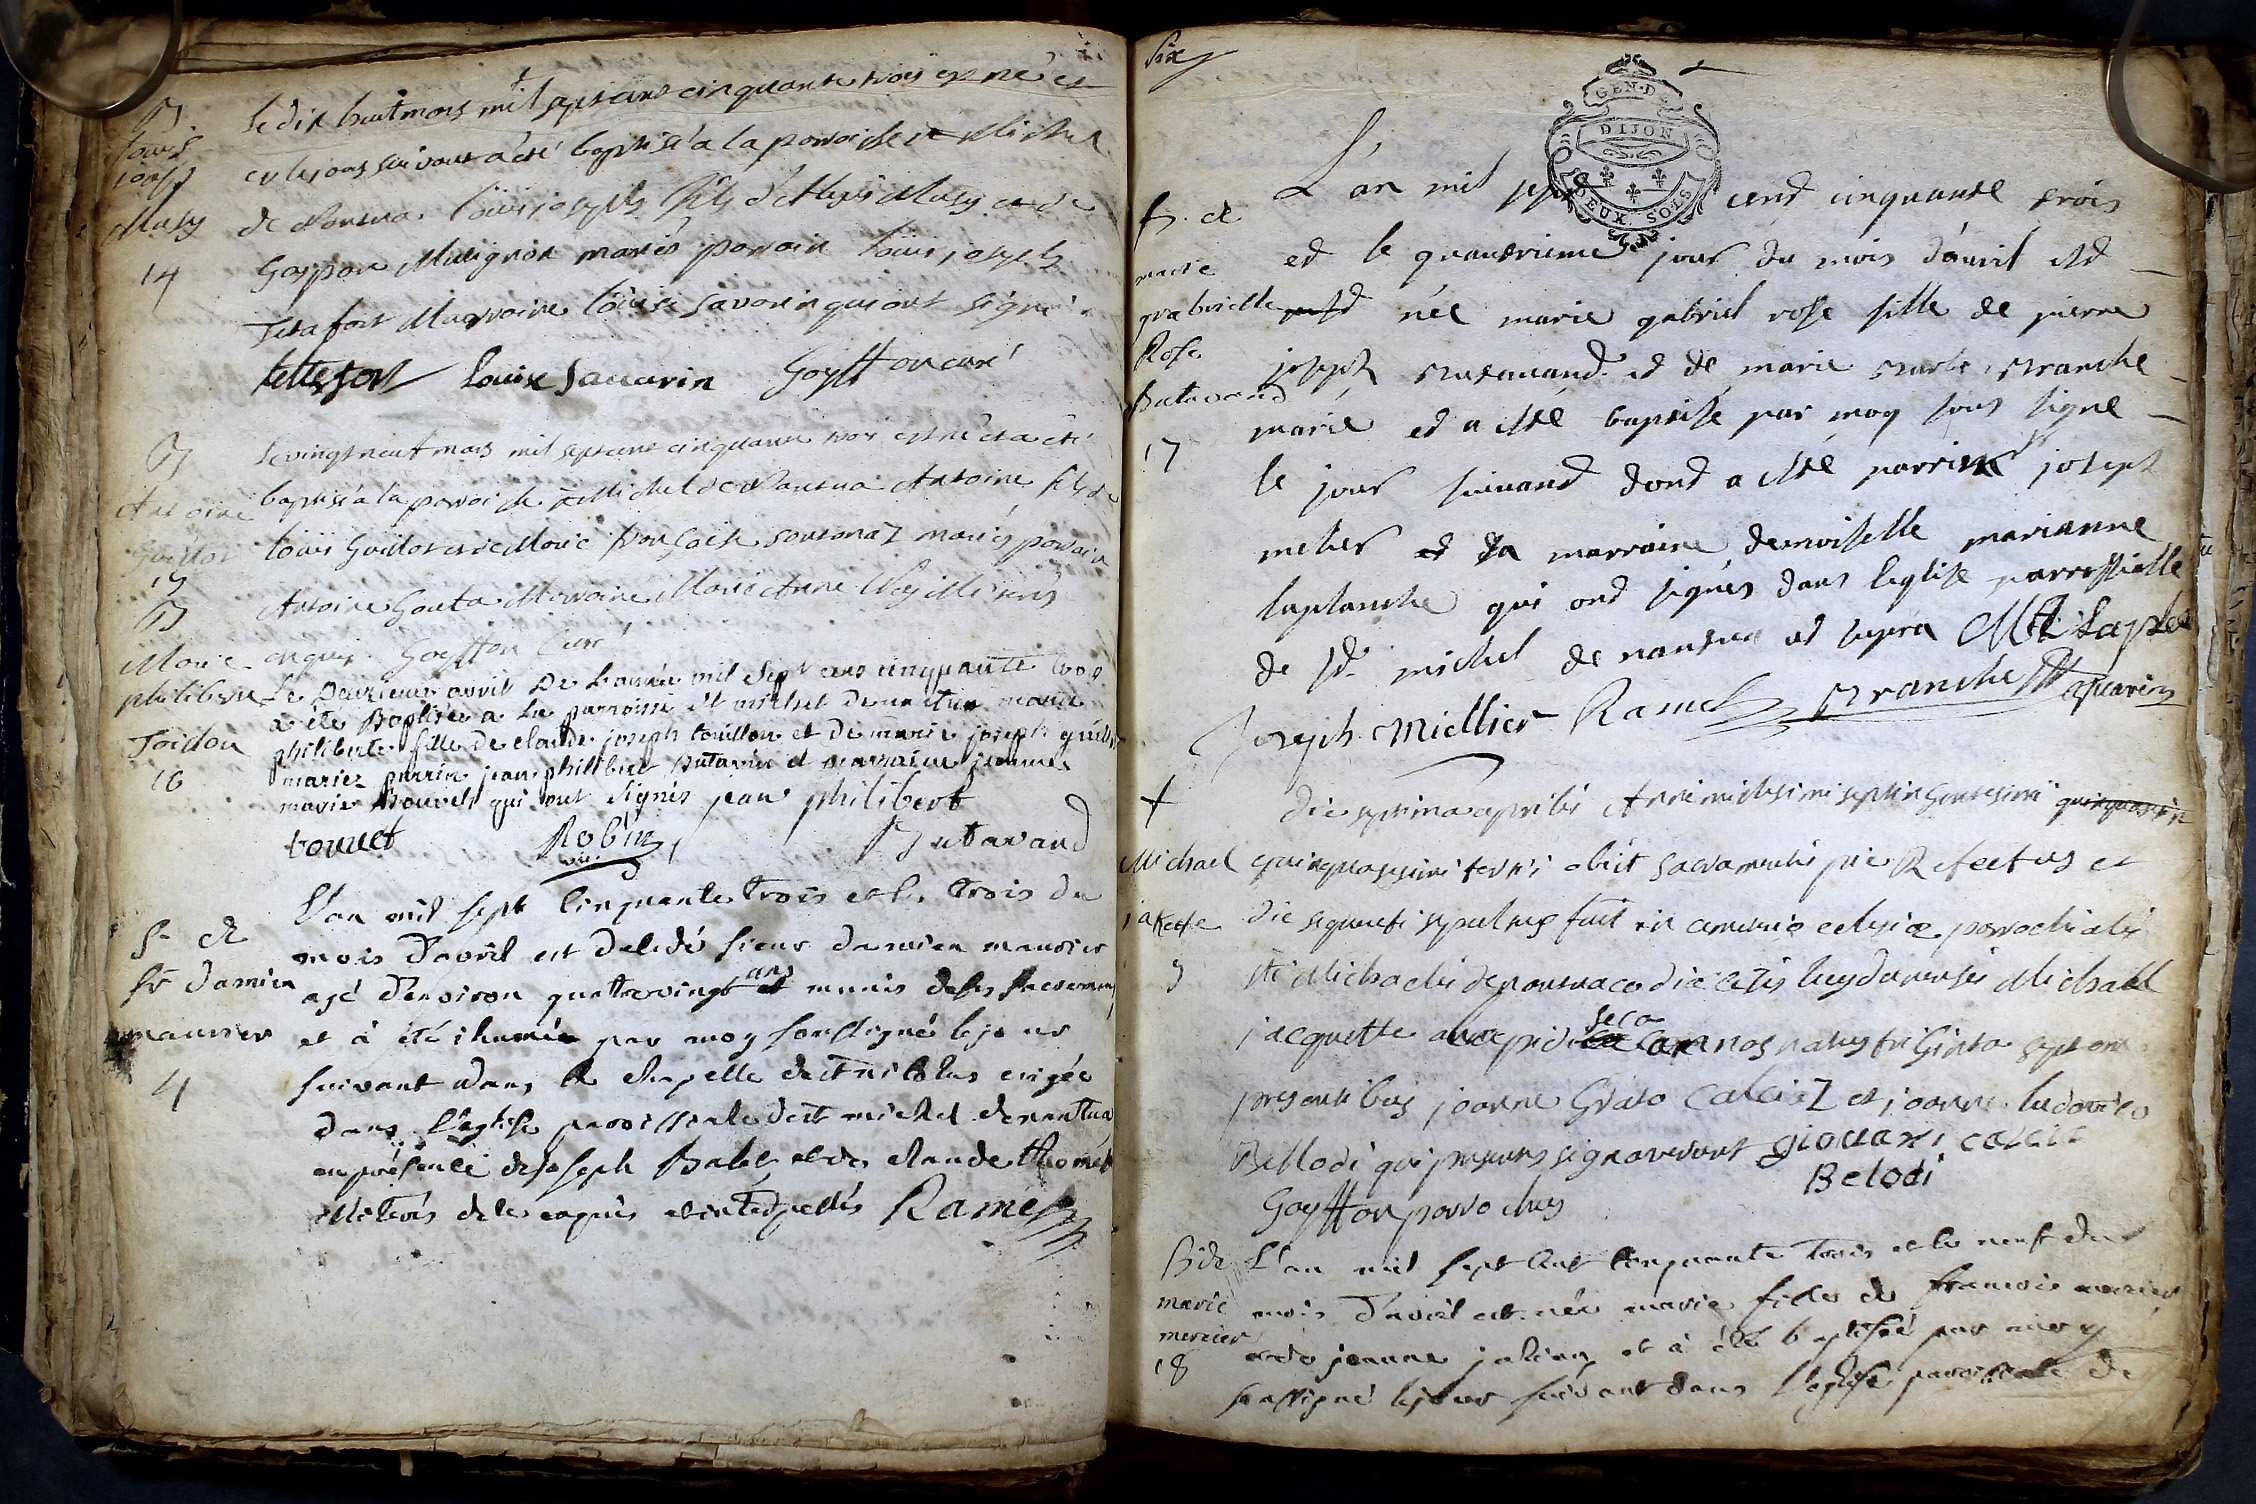 B
Louis
Josep
Musy
14
Le dix huit mars mil sept cent cinquante trois est né et
et le jour suivant a été baptisé a la parroisse st Michel
de Nantua Louis joseph fils d'Alexis Musy et de
Gasparde Malignon mariés parrain Louis joseph
Tetafort Marraine Louise Savarin qui ont signé
tettefort Louise Savarin Goyffon curé
B
Antoine
Guillot
15
Le vingt neuf mars mil sept cent cinquante trois est né et a été
baptisé a la parroisse st Michel de Nantua Antoine fils de
Louis Guillot et de Marie françoise soutonaz mariés parrain
Antoine Gouta Marraine Marie Anne illiterés
enquis Goyffon Curé
B
Marie
philiberte
Toidon
16
Le Deuxieme avril De Lannée mil sept cens cinquante trois
a été Baptisée a La parroisse st michel de nantua marie
philiberte fille de claude joseph touillon et De marie joseph
mariez parrin jean philibert Butavan et marraine jeanne
marie Bouvet qui ont signés jean philibert
bouuet Robin vic. Butavand
S. de
Sr damien
maurier
4
L'an mil sept Cinquante trois et le trois du
mois d'avril est décédé sieur damien maurier
agé d'environ quatrevingt ans munis de ses sacremens
et à été ihumée par moy soussigné le jour
suivant dans la chapelle de st nicolas erigée
dans l'eglise paroissiale de st michel de nantua
en présence de joseph Babez et de claude thomet
illiterés de ce enquis et interpellés Ramel
Six
GEN. D.
DIJON
DEUX. SOLS
b. de
marie
grabrielle
Rose
Butavand
17
L'an mil sept cend cinquante trois
ed le quautrieme jour du mois d'avril est
née marie gabriel rose fille de pierre
joseph Butavand ed de marie Branche
marié ed a esté baptisé par moy sous signé
le jour suivand dond a esté parrin joseph
melier ed la marraine demoiselle marianne
laplanche qui ond signés dans leglise parrossialle
de st michel de nantua ut supra
Joseph Miellier Ramel Branche
+
Michael
jakette
5
die septima aprilis Anni millesimi septingentesimi
quinquagesimi tertii obiit sacramentis pie Refectus et
die sequenti sepultus fuit in cemeterio eclesiæ parrochialis
sti Michaelis de nantuaco diæcesis lugdunensis Michael
jacquette annos natus triginta septem
presentibus joanne Grato Calciaz et joanne ludovico
Bellodi qui presens signaverunt giouani calcia
Belodi
Goyffon parrochus
B de
marie
mercier
18
L'an mil sept Cent Cinquante trois et le neuf du
mois d'avril est née marie fille de francois mercier
et de jeanne et à été baptisée par moy
soussigné le jour suivant dans l'eglise paroissiale de